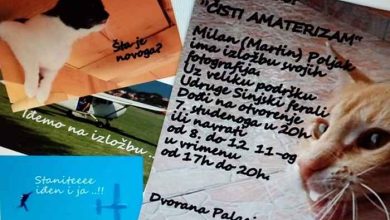 Šta je
novoga?
Idemo na izložbu ..
Staniteeee
iđen i ja ..!!
"ČISTI AMATERIZAM"
Milan (Martin) Poljak
ima izložbu svojih
fotografija.
Uz veliku podršku
Udruge Sinjski ferali
Dođi na otvorenje
7. studenoga u 20h
ili navrati
od 8. do 12. 11-og
u vrimenu
od 17h do 20h.
Dvorana